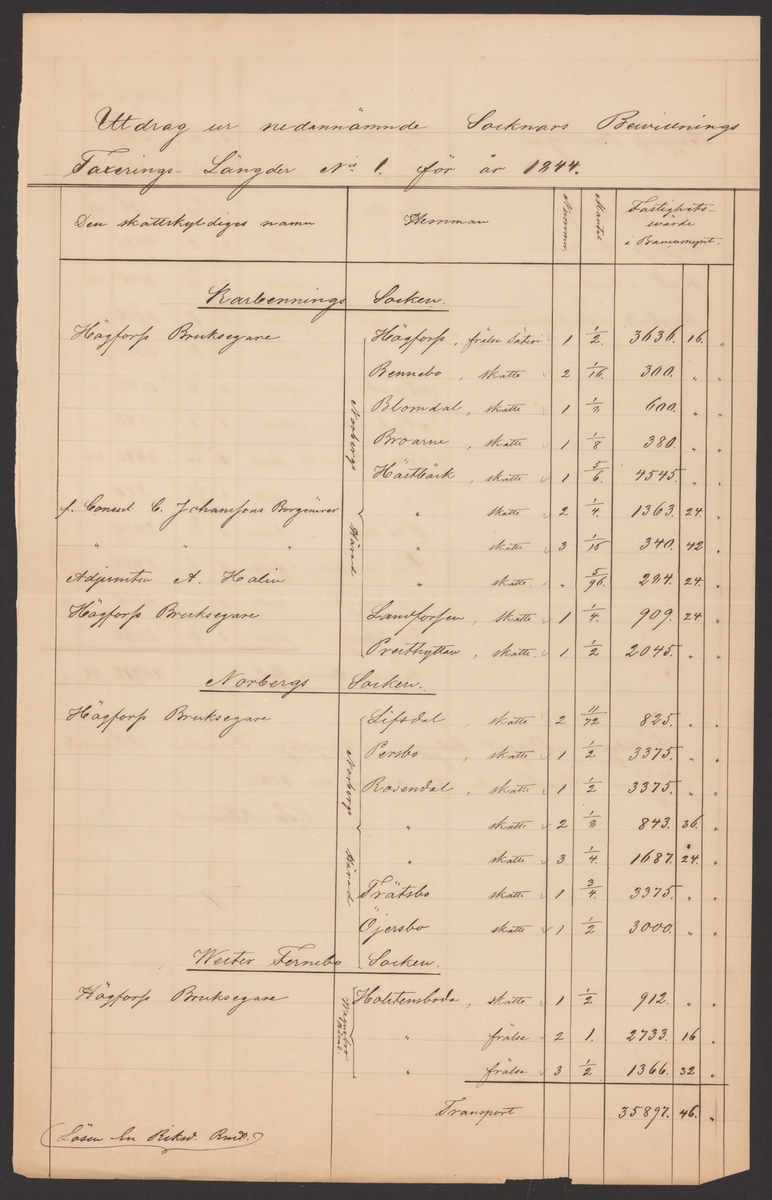 Utdrag ur nedannämnde Socknars Bewillnings
Taxerings-Längder No 1. för år 1844.
Den skattskyldiges namn Hemman Nummer. Mantal Fastighets-värde i Bancomynt.
Karbennings Socken.
Norbergs Härad
Högforss Bruksegare Högforss, frälse Säteri 1 1/2. 3636. 16. "
Bennebo, skatte 2 1/16. 300. " "
Blomdal, skatte 1 1/8 600. " "
Broarne, skatte 1 1/8 380. " "
Hästbäck, skatte 1 5/6. 4545. " "
f. Consul C. Johanssons Borgenärer " skatte 2 1/4. 1363. 24. "
" " " " skatte 3 1/16 340. 42 "
Adjuncten A. Halin " skatte. " 5/96. 284. 24. "
Högforss Bruksegare Landforsen, skatte 1 1/4. 909. 24 "
Presthyttan, skatte. 1 1/2 2045. " "
Norbergs Socken.
Norbergs Härad
Högforss Bruksegare Lifsdal, skatte 2 11/72 825. " "
Persbo, skatte 1 1/2 3375. " "
Rosendal, skatte 1 1/2 3375. " "
" skatte 2 1/8 843. 36. "
" skatte 3 1/4. 1687. 24. "
Trätsbo skatte 1 3/4. 3375. " "
Öjersbo skatte 1 1/2 3000. " "
Wester Fernebo Socken.
Högforss Bruksegare Holstensboda, skatte 1 1/2 912. " "
" frälse 2 1. 2733. 16 "
" frälse 3 1/2 1366. 32 "
Transport 35897. 46. "
(Lösen En Riksd. Rmt.)